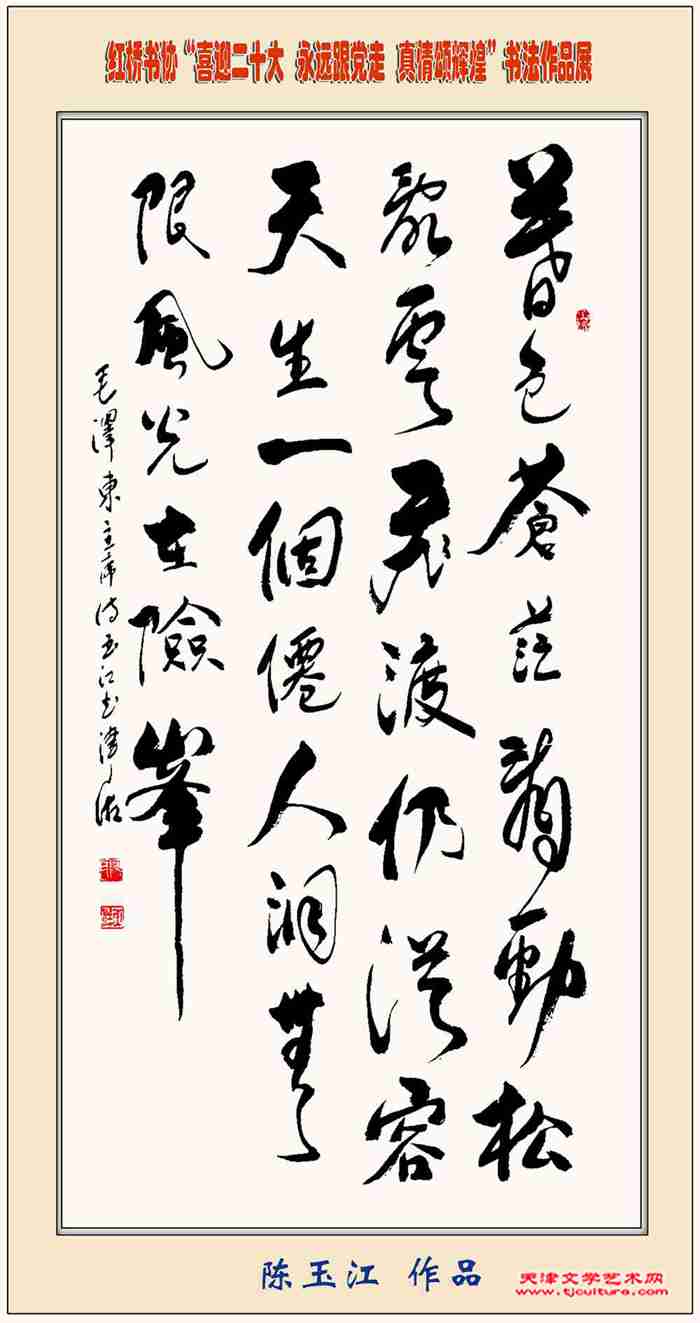 红桥书协“喜迎二十大 永远跟党走 真情颂辉煌”书法作品展
暮色蒼茫看勁松
亂雲飛渡仍從容
天生一個僊人洞無
限風光在險峯
毛澤東主席詩玉江书津
陈玉江 作品
天津文学艺术网
www.tjculture.com